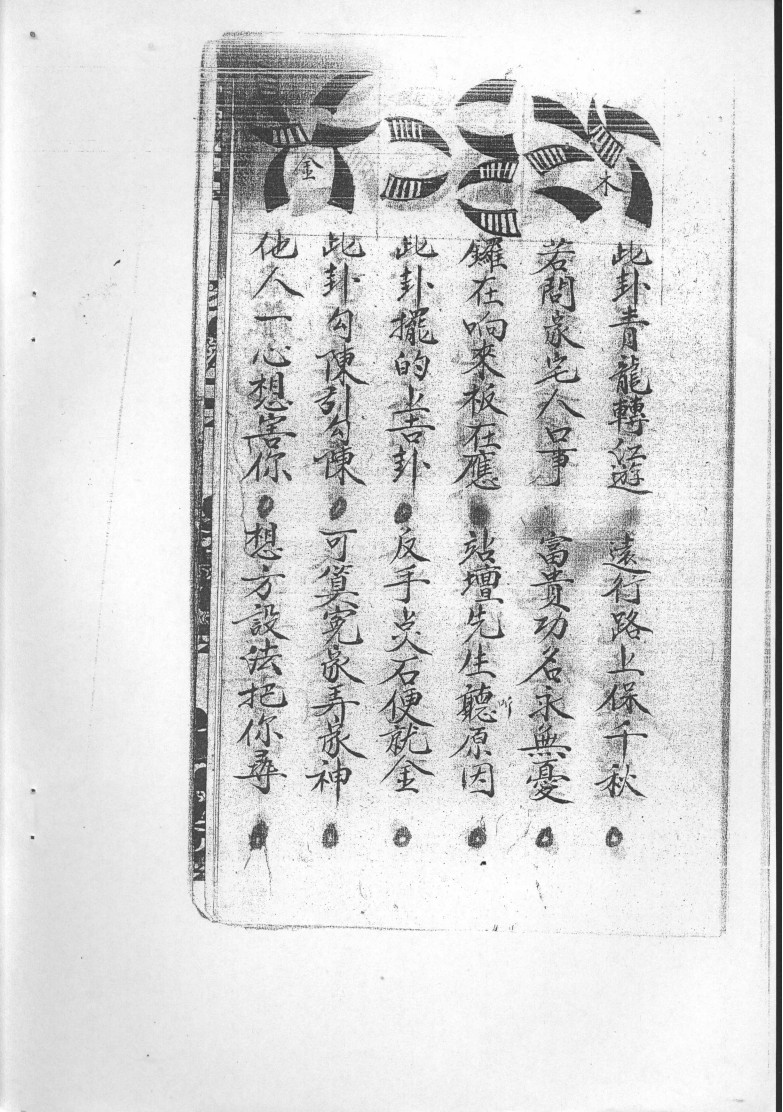 木
此卦青龍轉江遊 遠行路上保千秋
若問家宅人口事 富貴功名永無憂
鑼在响來板在應 站壇先生聽原因
听
此卦擺的上吉卦 反手点石便就金
金
此卦勾陳引勾陳 可算冤家弄家神
他人一心想害你 想方設法把你尋